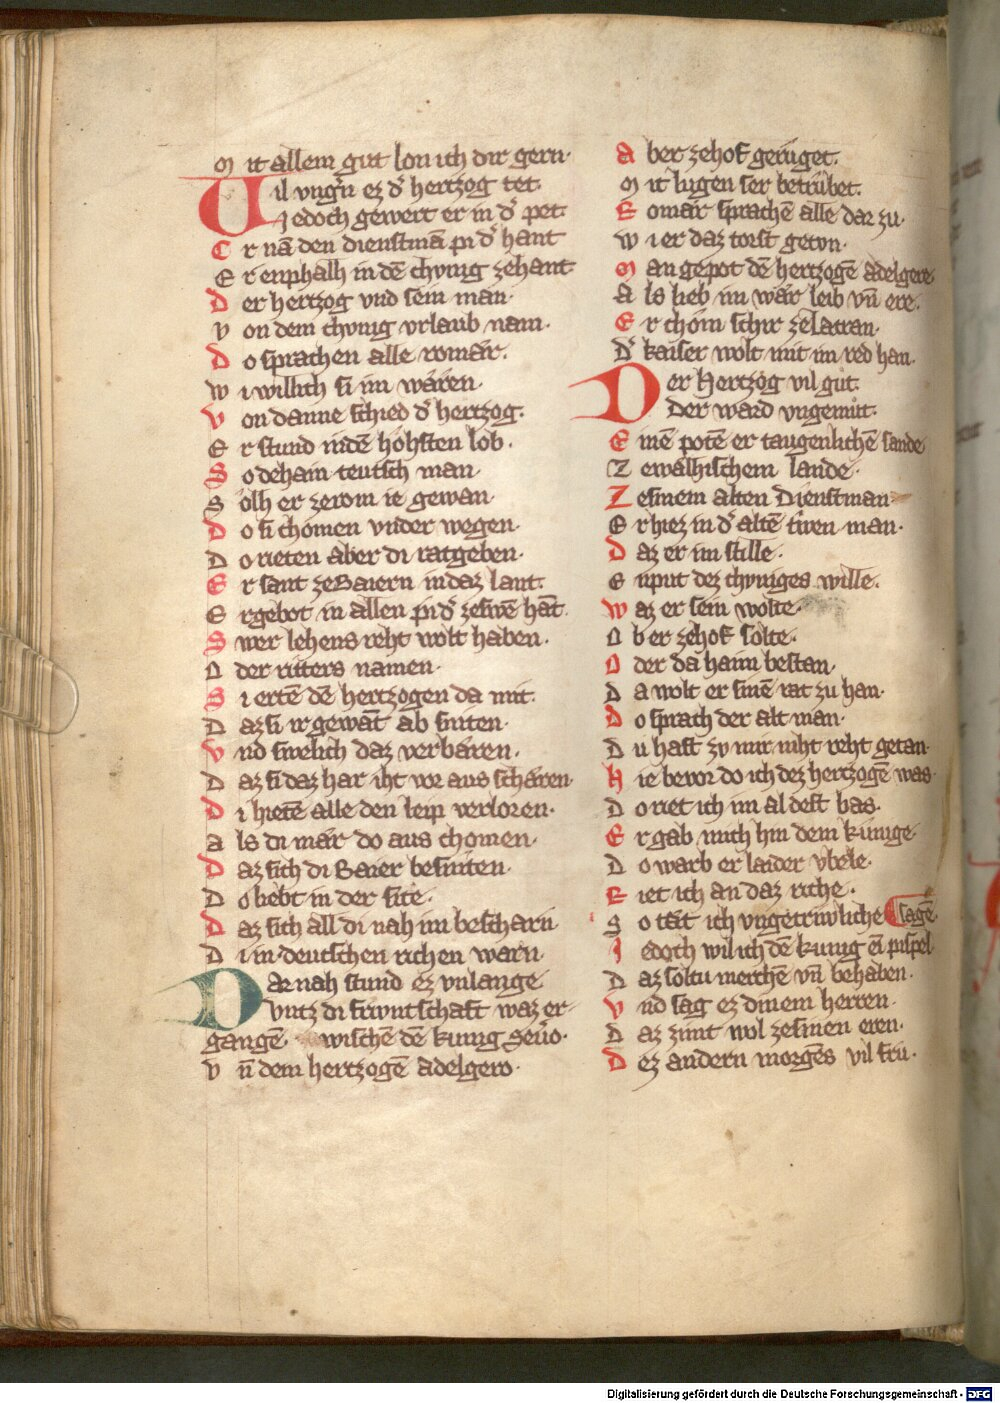 M it allem gut lon ich dir gern·
Vil vngn̄ ez d' hertzog tet·
Jedoch gewert er in d' pet·
E r nā den dienstmā pi d' hant
E r enphalh in dē chvnig zehant·
D er hertzog vnd sein man·
V on dem chvnig vrlaub nam·
D o sprachen alle romär·
W i willich si im wären·
V on danne schied d' hertzog·
E r stund in dē höhsten lob·
S o dehain teutsch man·
S ölh er ze rom ie gewan·
D o si chomen vnder wegen·
D o rieten aber di ratgeben·
E r sant ze Baiern in daz lant·
E r gebot in allen pi d' zeswē hāt·
S wer lehens reht wolt haben·
O der ritters namen·
S i ertē dē hertzogen da mit·
D az si ir gewāt ab sniten·
V nd swelich daz verbären·
D az si daz har iht vor aus schären·
D i hietē alle den leip verloren·
A ls di mär do aus chomen·
D az sich di Baier besniten·
D o liebt in der site·
D az sich all di nah im bescharn
D i in deutschen richen warn·
Dar nah stund ez vnlange
Vntz di frivntschaft waz er-
gangē· wischē dē kunig Seūo·
V n̄ dem hertzogē Adelgero·
A ber ze hof gerüget·
M it lugen ser betrübet·
R omär sprachē alle dar zu·
W i er daz torst getvn·
M an gepot dē hertzogē Adelgere
A ls lieb im wär leib vn̄ ere·
E r chom schir ze Latran·
D' kaiser wolt mit im red han·
Der Hertzog vil gůt·
Der ward vngemůt·
E inē potē er taugenlichē sande
Z e wälhischem lande·
Z e sinem alten Dienstman
E r hiez in d' altē triwen man·
D az er im stille·
E nput dez chvniges wille·
W az er sein wolte·
O b er ze hof solte·
O der da haim bestan·
D a wolt er sinē rat zu han·
D o sprach der alt man·
D u hast zv mir niht reht getan
H ie bevor do ich dez hertzogē was·
D o riet ich im al dest bas·
E r gab mich hin dem künige
D o warb er laider vbele·
R iet ich an daz riche·
S o tät ich vngetriwliche sagē·
I edoch wil ich dē kunig ei pispel
D az soltu merchē vn̄ behaben·
V nd sag ez dinem herren·
D az zimt wol ze sinen eren·
D ez andern morgēs vil fru·
Digitalisierung gefördert durch die Deutsche Forschungsgemeinschaft - DFG